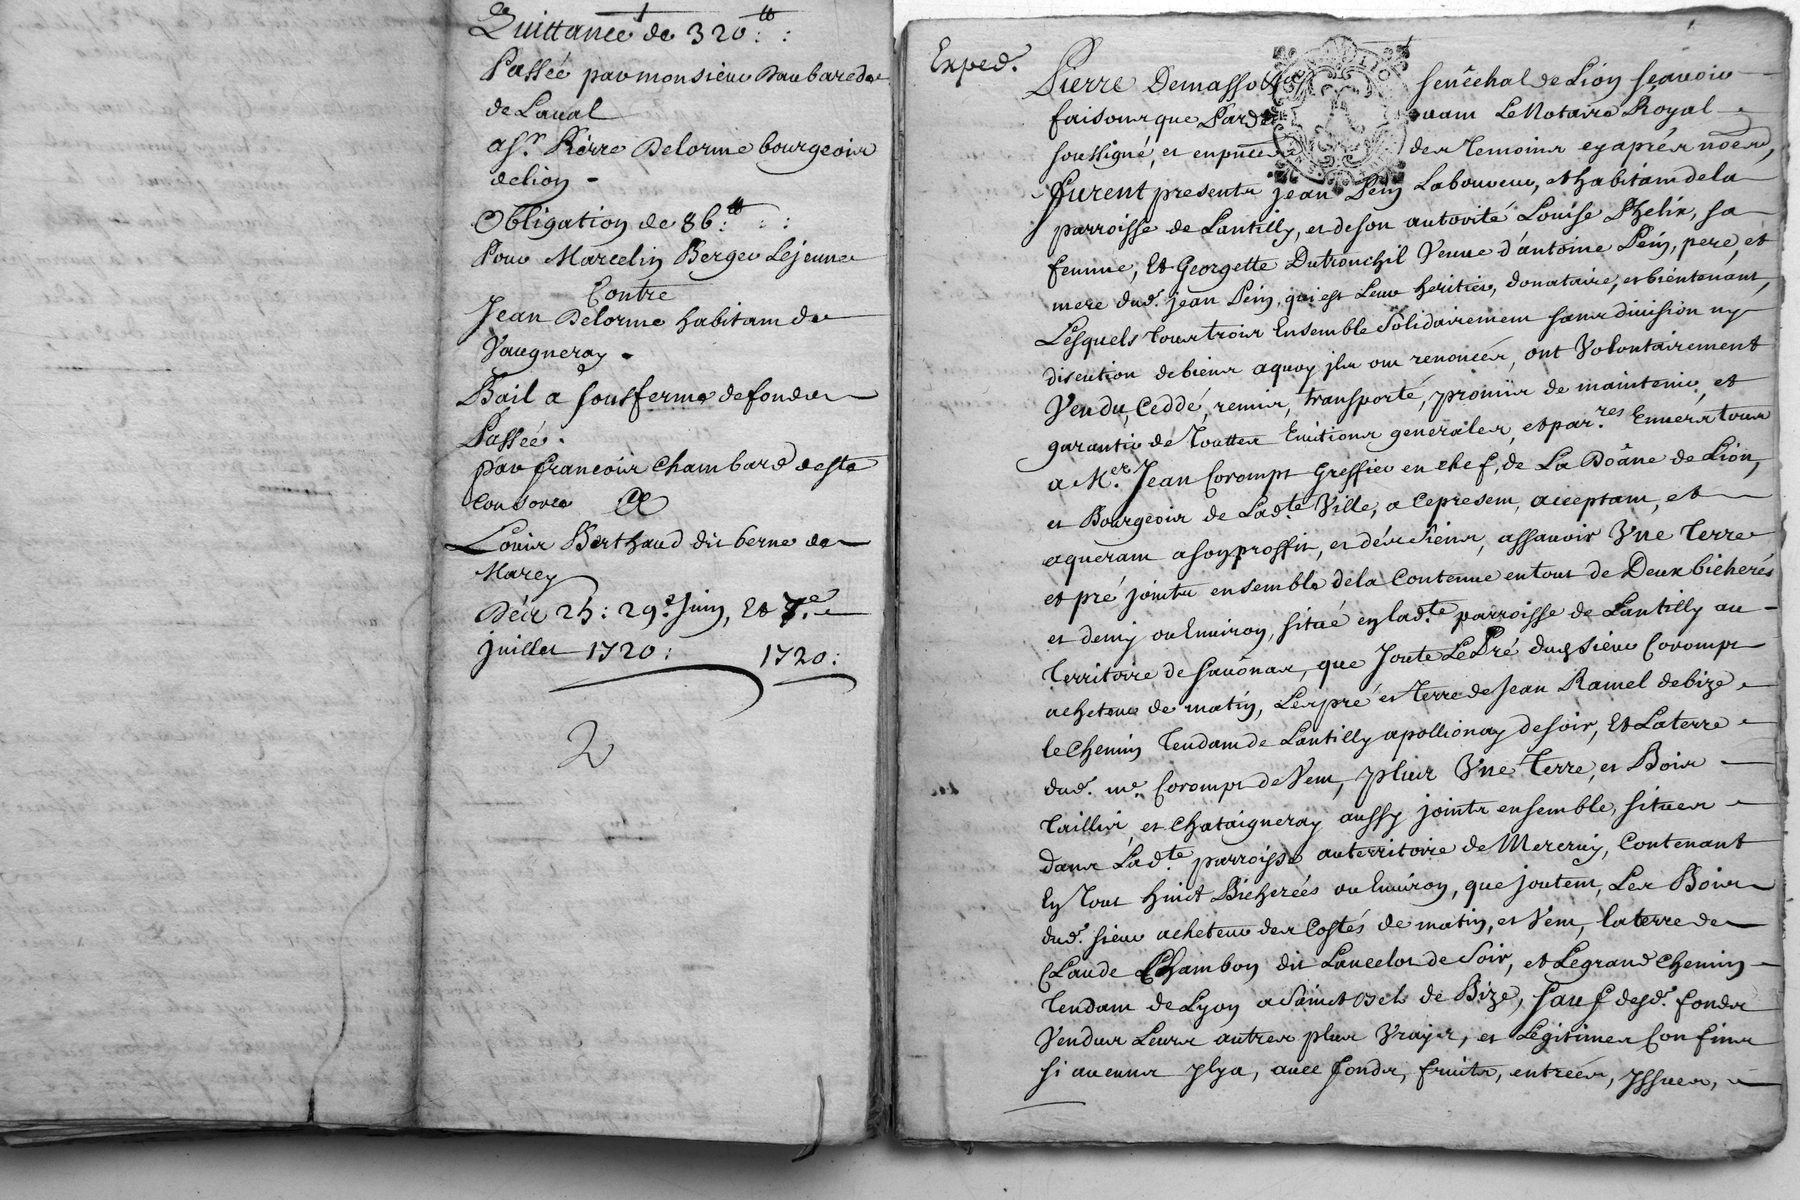 Quittance de 320 ₶ : :
Passée par monsieur Daubarede
de Laval
a Sr. Pierre Delorme bourgeois
de lion -
Obligation de 86 ₶ : :
Pour Marcelin Berger Lejeune
Contre
Jean Delorme habitant de
Vaugneray .
Bail a sousferme de fonds
Passée .
par francois Chambard de Ste
Consorce
Louis Berthaud dit berne de
Marcy
Des 25 : 29e. Juin, Et 7e.
juillet 1720 : 1720 :
2
Exped.
Pierre Demasso senêchal de Lion sçavoir
faisons, que Pard vant Le Notaire Royal
soussigné, et en pnce des temoins cy aprés nões,
furent presents jean Peiy Laboureur, et habitant de la
parroisse de Lantilly, et de son autorité Louise Phelix, sa
femme, Et Georgette Dutronchil Veuve d'antoine Peiy, pere, et
mere dud. jean Peiy, qui est Leur heritier, donataire, et bientenant,
Lesquels tous trois Ensemble Solidairement sans division ny
discution de biens a quoy jls ont renoncés, ont Volontairement
Vendu, Ceddé, remis, transporté, promis de maintenir, et
garantir de touttes Evitions generales, et par.res Envers tous
a Me. Jean Corompt Greffier en chef, de La Doâne de Lion,
et Bourgeois de Ladte. Ville, a ce present, acceptant, et
aquerant a son proffit, et des Siens, assavoir Vne Terre
et pré joints ensemble de la Contenue en tout de Deux bicherés
et demy ou Environ, situé en lad.te parroisse de Lantilly au
territoire de sauônas, que Joute Le Pré dud. sieur Corompt
acheteur de matin, Les pré et terre de Jean Ramel de bize
le Chemin tendant de Lantilly a pollionay de soir, Et La terre
dud. me. Corompt de Vent, plus Vne Terre, et Bois
taillis, et Chataigneray aussy joints ensemble, situés
dans Lad.te parroisse au territoire de Mercruy, Contenant
En tout huict Bicherées ou Environ, que joutent, Les Bois
dud. sieur acheteur des Costés de matin, et Vent, la terre de
Claude Chambon dit Lancelot de Soir, et Le grand Chemin
tendant de Lyon a Sainct Bel de Bize, sauf desd. fonds
Vendus Leurs autres plus Vrays, et Legitimes Confins
si aucuns y lya, avec fonds, fruits, entrées, yssues,